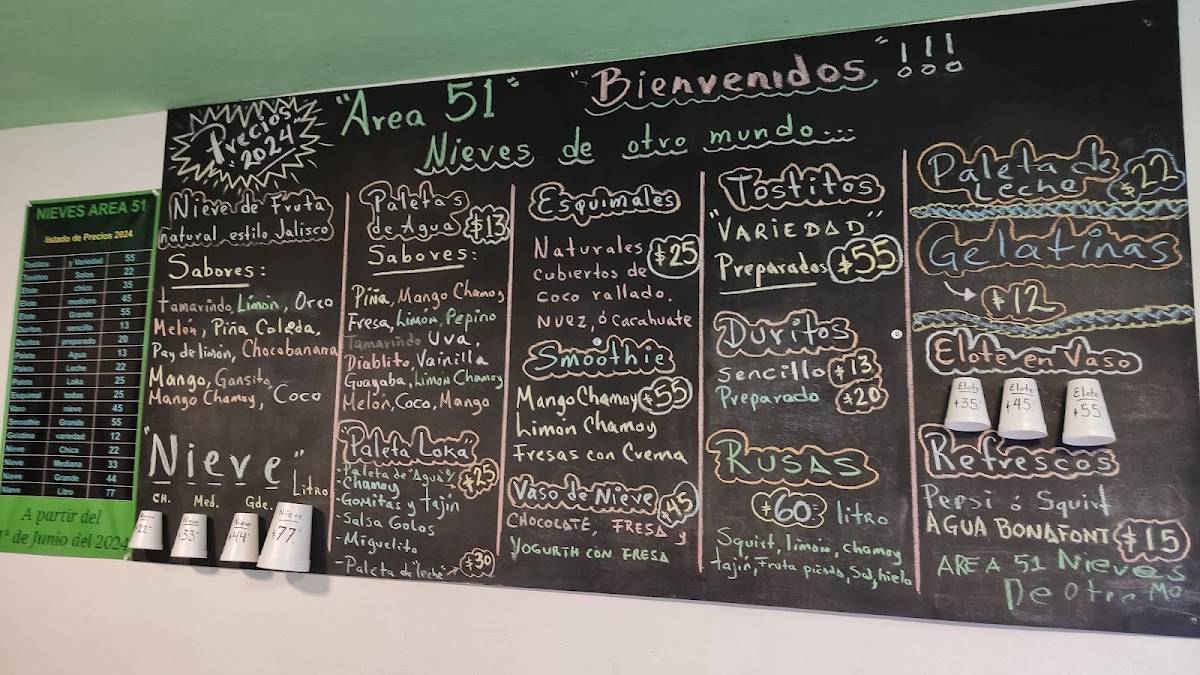 "Area 51" "Bienvenidos" !!!
Nieves de otro mundo...
Precios
2024
NIEVES AREA 51
listado de Precios 2024
Tostitos y Variedad 55
Tostitos Solos 22
Elote chico 35
Elote mediano 45
Elote Grande 55
Duritos sencillo 13
Duritos preparado 20
Paleta Agua 13
Paleta Leche 22
Paleta Loka 25
Esquimal todos 25
Vaso nieve 45
Smoothie Grande 55
Gelatina variedad 12
Nieve Chica 22
Nieve Mediana 33
Nieve Grande 44
Nieve Litro 77
A partir del
1º de Junio del 2024
Nieve de Fruta
natural estilo Jalisco
Sabores:
Tamarindo, Limón, Oreo
Melón, Piña Colada,
Pay de limón, Chocobanana
Mango, Gansito,
Mango Chamoy, Coco
"Nieve"
CH. Med. Gde. Litro
22
Nieve
33
Nieve
44
Nieve
77
Paletas
de Agua $13
Sabores:
Piña, Mango Chamoy
Fresa, Limón, Pepino
Tamarindo Uva,
Diablito, Vainilla
Guayaba, Limon Chamoy
Melón, Coco, Mango
"Paleta Loka"
-Paleta de Agua $25
-Chamoy
-Gomitas y tajín
-Salsa Golos
-Miguelito
-Paleta de "leche" → $30
Esquimales
Naturales $25
cubiertos de
coco rallado,
nuez, ó Cacahuate
Smoothie
Mango Chamoy $55
Limón Chamoy
Fresas con Crema
Vaso de Nieve $45
CHOCOLATE, FRESA y
YOGURTH CON FRESA
Tostitos
"VARIEDAD"
Preparados $55
Duritos
sencillo $13
Preparado $20
RUSAS
$60 litro
Squirt, limón, chamoy
tajín, Fruta picada, Sal, hielo
Paleta de
Leche $22
Gelatinas
→ $12
Elote en Vaso
Elote
$35
Elote
$45
Elote
$55
Refrescos
Pepsi ó Squirt
AGUA BONAFONT $15
AREA 51 Nieves
De Otro Mo